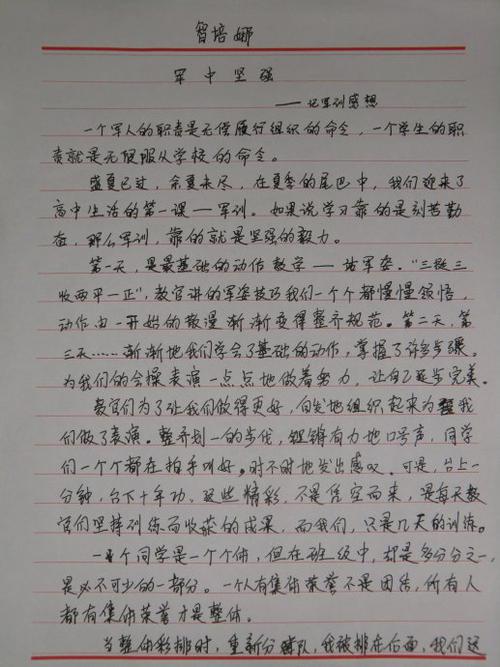 智培娜
军中坚强
——记军训感想
一个军人的职责是无偿履行组织的命令，一个学生的职
责就是无偿服从学校的命令。
盛夏已过，余夏未尽，在夏季的尾巴中，我们迎来了
高中生活的第一课——军训。如果说学习靠的是刻苦勤
奋，那么军训，靠的就是坚强的毅力。
第一天，是最基础的动作教学——站军姿。“三挺三
收两平一正”，教官讲的军姿技巧我们一个个都慢慢领悟，
动作由一开始的散漫渐渐变得整齐规范。第二天，第
三天……渐渐地我们学会了基础的动作，掌握了许多步骤。
为我们的会操表演一点点地做着努力，让自己逐步完美。
教官们为了让我们做得更好，自发地组织起来为我
们做了表演。整齐划一的步伐，铿锵有力地口号声，同学
们一个个都在拍手叫好。时不时地发出感叹。可是，台上一
分钟，台下十年功。这些精彩不是凭空而来，是每天教
官们坚持训练而收获的成果，而我们，只是几天的训练。
一个同学是一个个体，但在班级中，却是多分分之一，
是必不可少的一部分。一个人有集体荣誉不是团结，所有人
都有集体荣誉才是整体。
当整体彩排时，重新分队，我被排在后面，我们这